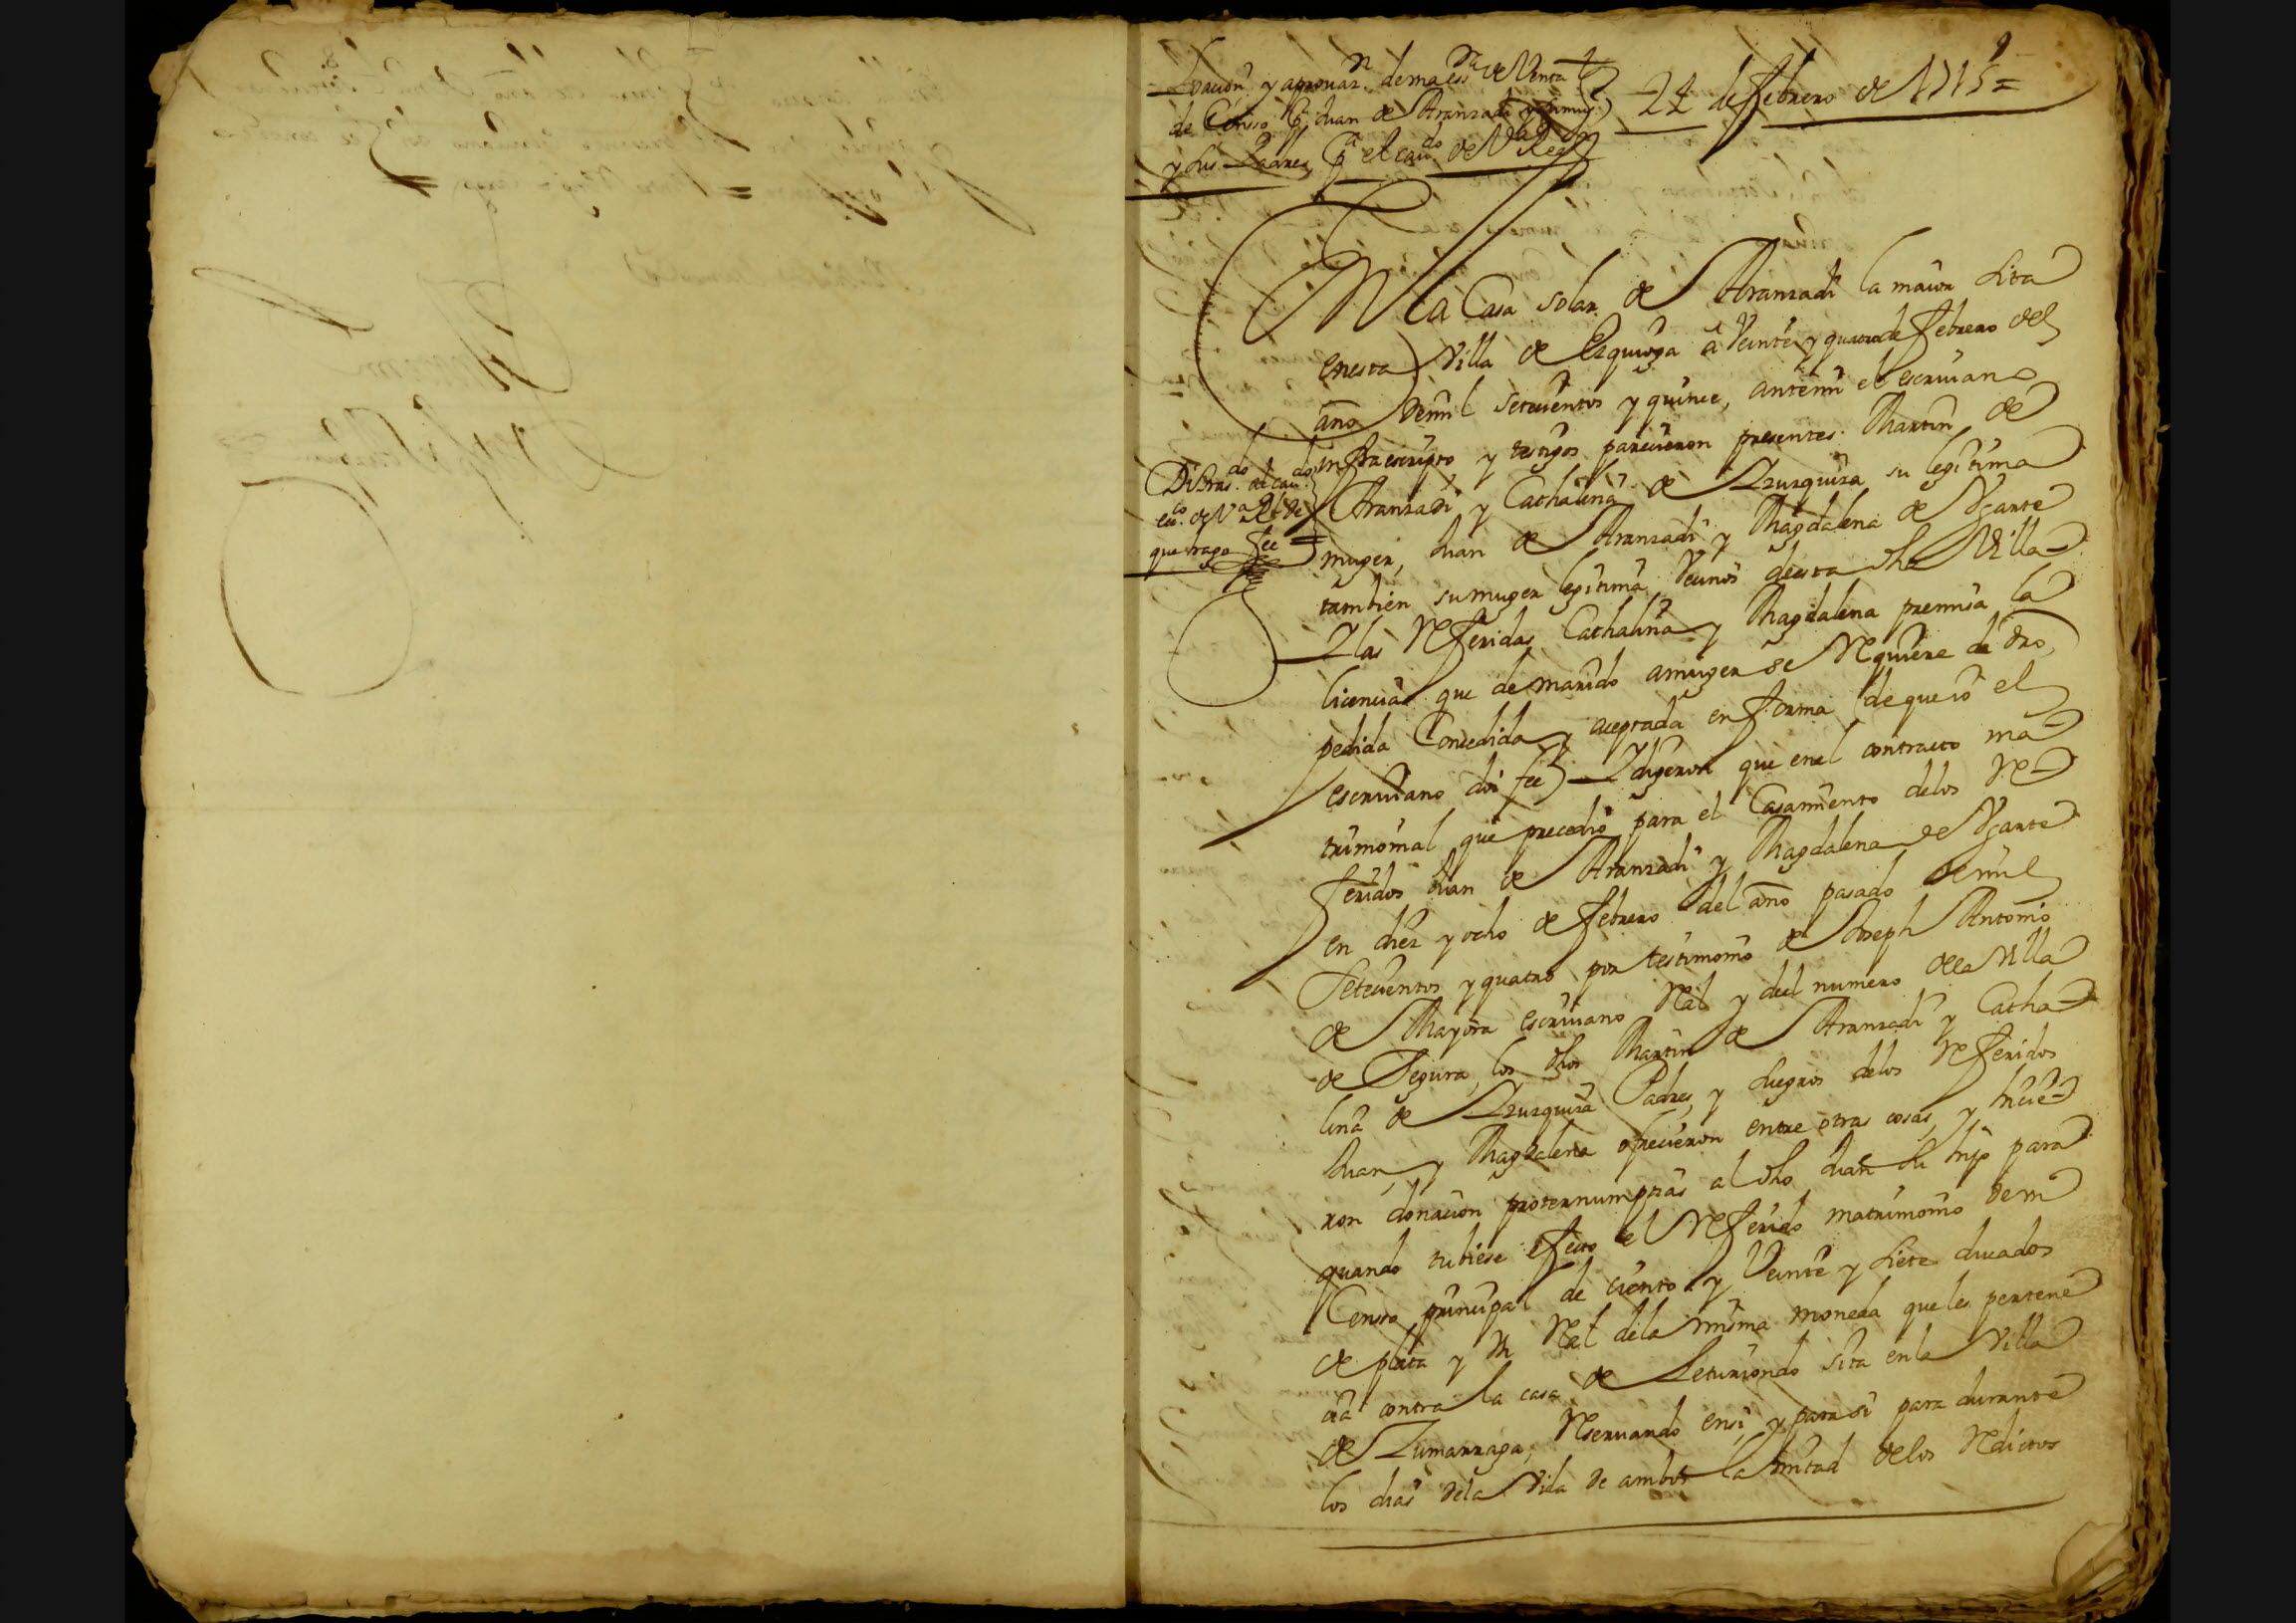 Loacion y aprouaz.n de una ess.ra de Venta
de Censso p.r Juan de Aranzadi y su mug.r
y sus Padres, p.a el cau.do de V.a Real
24 de febrero de 1715 =
En la Casa solar de Aranzadi la maior sita
en esta Villa de Ezquioga à Veinte y quatro de febrero del
año de mil setecientos y quince, ante mi el escriuano
infraescripto y testigos parecieron presentes Martin de
Aranzadi y Cathalina de Izuzquiza su legitima
muger, Juan de Aranzadi y Magdalena de Ygarte
tambien su muger legitima Vecinos de esta dha Villa
Y las Referidas Cathalina y Magdalena premisa la
licencia que de marido a muger se Requiere de dro,
pedida Concedida y aceptada en forma (de que io el
escriuano doi fee) Y dijeron que en el contracto ma
trimonial que precedio para el Casamiento delos Re
feridos Juan de Aranzadi y Magdalena de Ygarte
en diez y ocho de febrero del año pasado de mil
Setecientos y quatro por testimonio de Joseph Antonio
de Mayora escriuano Real y del numero de la Villa
de Segura, los dhos Martin de Aranzadi y Catha
lina de Izuzquiza Padres, y suegros delos Referidos
Juan, y Magdalena ofrecieron entre otras cosas, y hicie
ron donacion propternumptias al dho Juan su hijo para
quando tubiese efecto el Referido matrimonio de un
Censo principal de ciento y Veinte y siete ducados
de plata y un Real dela misma moneda que les pertene
cia contra la casa de Leturiondo sita en la Villa
de Zumarraga, Reseruando en si, y para si para durante
los dias dela Vida de ambos la mitad delos Reditos
Di tras.do al cau.do
ecc.co de V.a R.l de
que hago fee